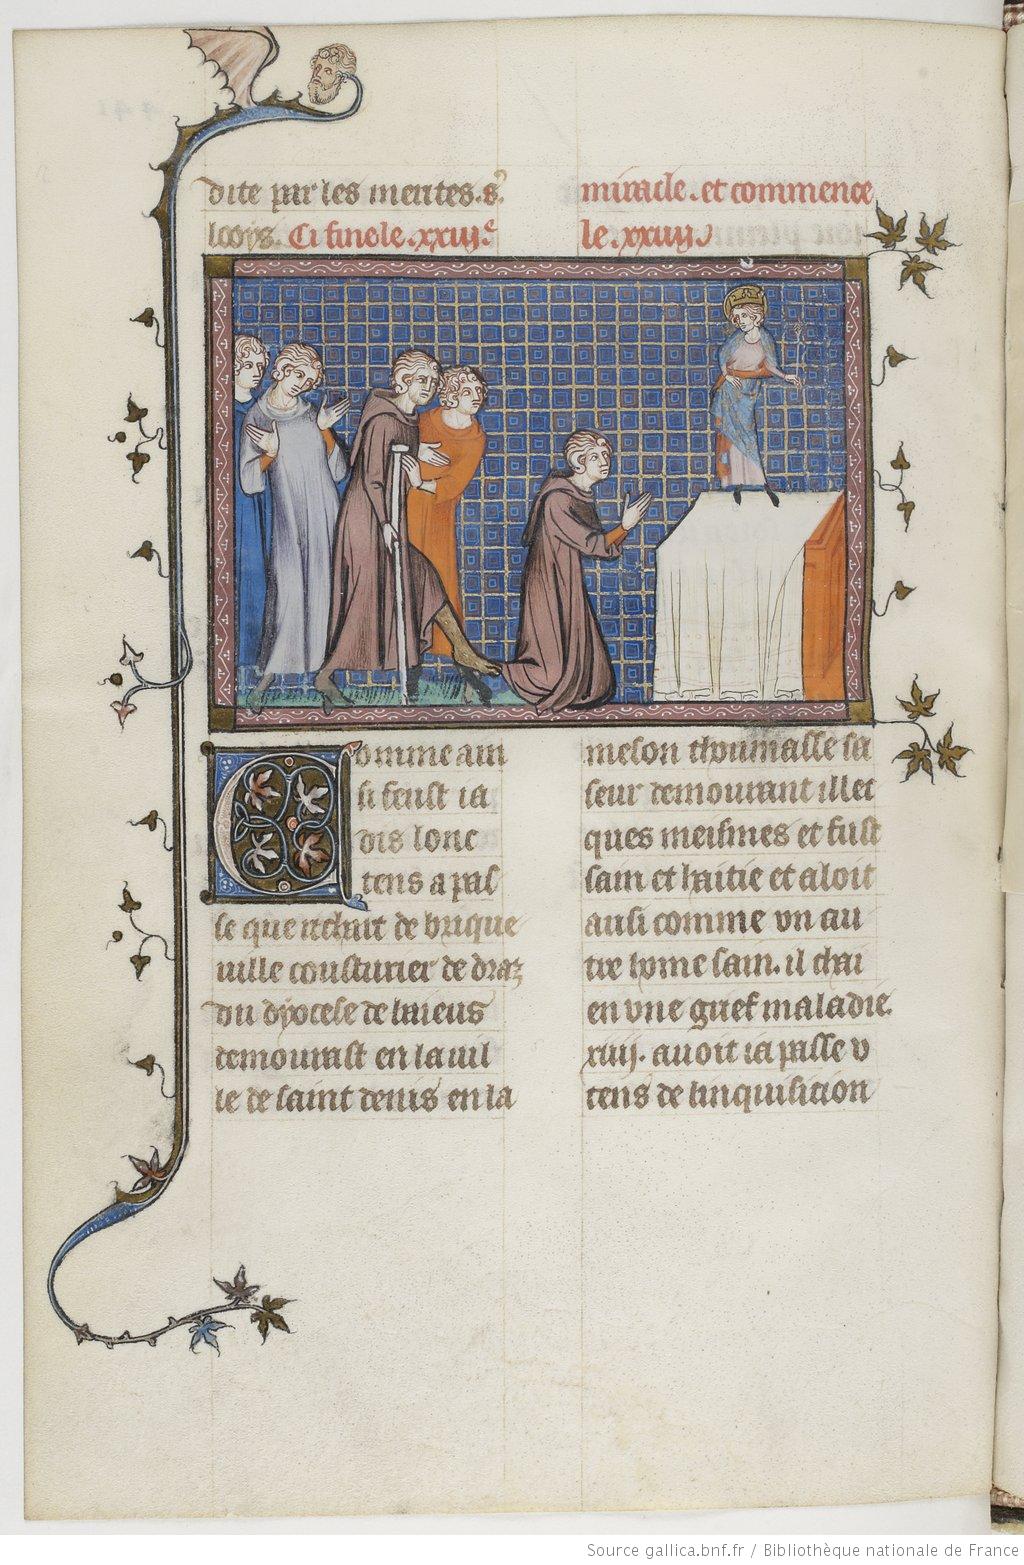 dite par les merites. s.
looys. Ci fine le .xxiije
miracle. et commence
le .xxiiij.
Comme ain
si feust ia
dis lonc
tens a pas
se que richart de brique
uille cousturier de draz
du dyocese de baieus
demourast en la uil
le de saint denis en la
meson thoumasse sa
seur demourant illec
ques meismes et fust
sain et haitie et aloit
ausi comme vn au
tre home sain. il chai
en vne grief maladie.
xiiij. auoit ia passe v
tens de linquisicion
Source gallica.bnf.fr / Bibliothèque nationale de France